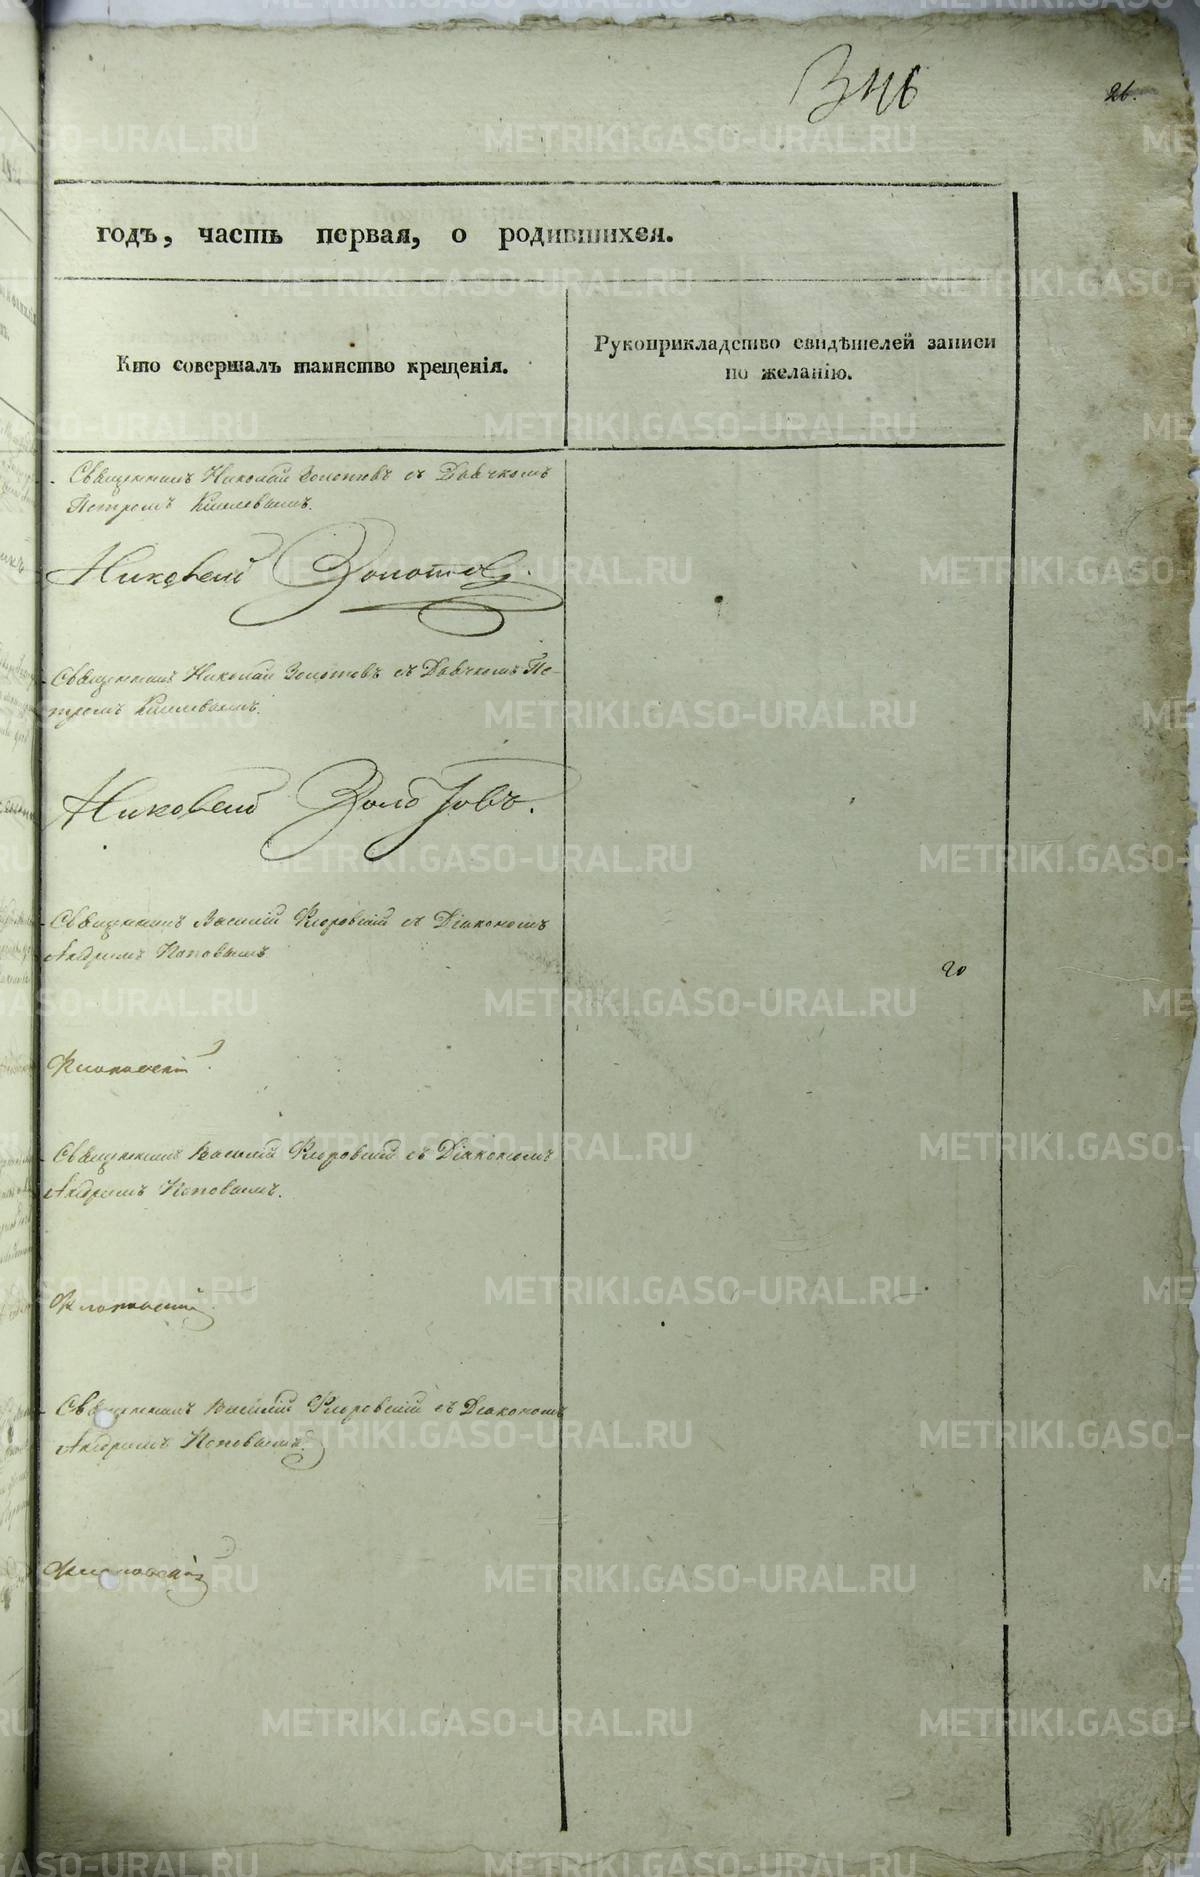 346
26.
годъ, часть первая, о родившихся.
Кто совершалъ таинство крещенія.
Рукоприкладство свидѣтелей записи
по желанію.
Священникъ Николай Золотовъ съ Дьячкомъ
Петромъ Киселевымъ.
Николай Золотовъ.
Священникъ Николай Золотовъ съ Дьячкомъ Пе-
тромъ Киселевымъ.
Николай Золотовъ.
Священникъ Василій Флоровскій съ Діакономъ
Андреемъ Поповымъ
20
Флоровскій
Священникъ Василій Флоровскій съ Діакономъ
Андреемъ Поповымъ.
Флоровскій
Священникъ Василій Флоровскій съ Діакономъ
Андреемъ Поповымъ.
Флоровскій
METRIKI.GASO-URAL.RU